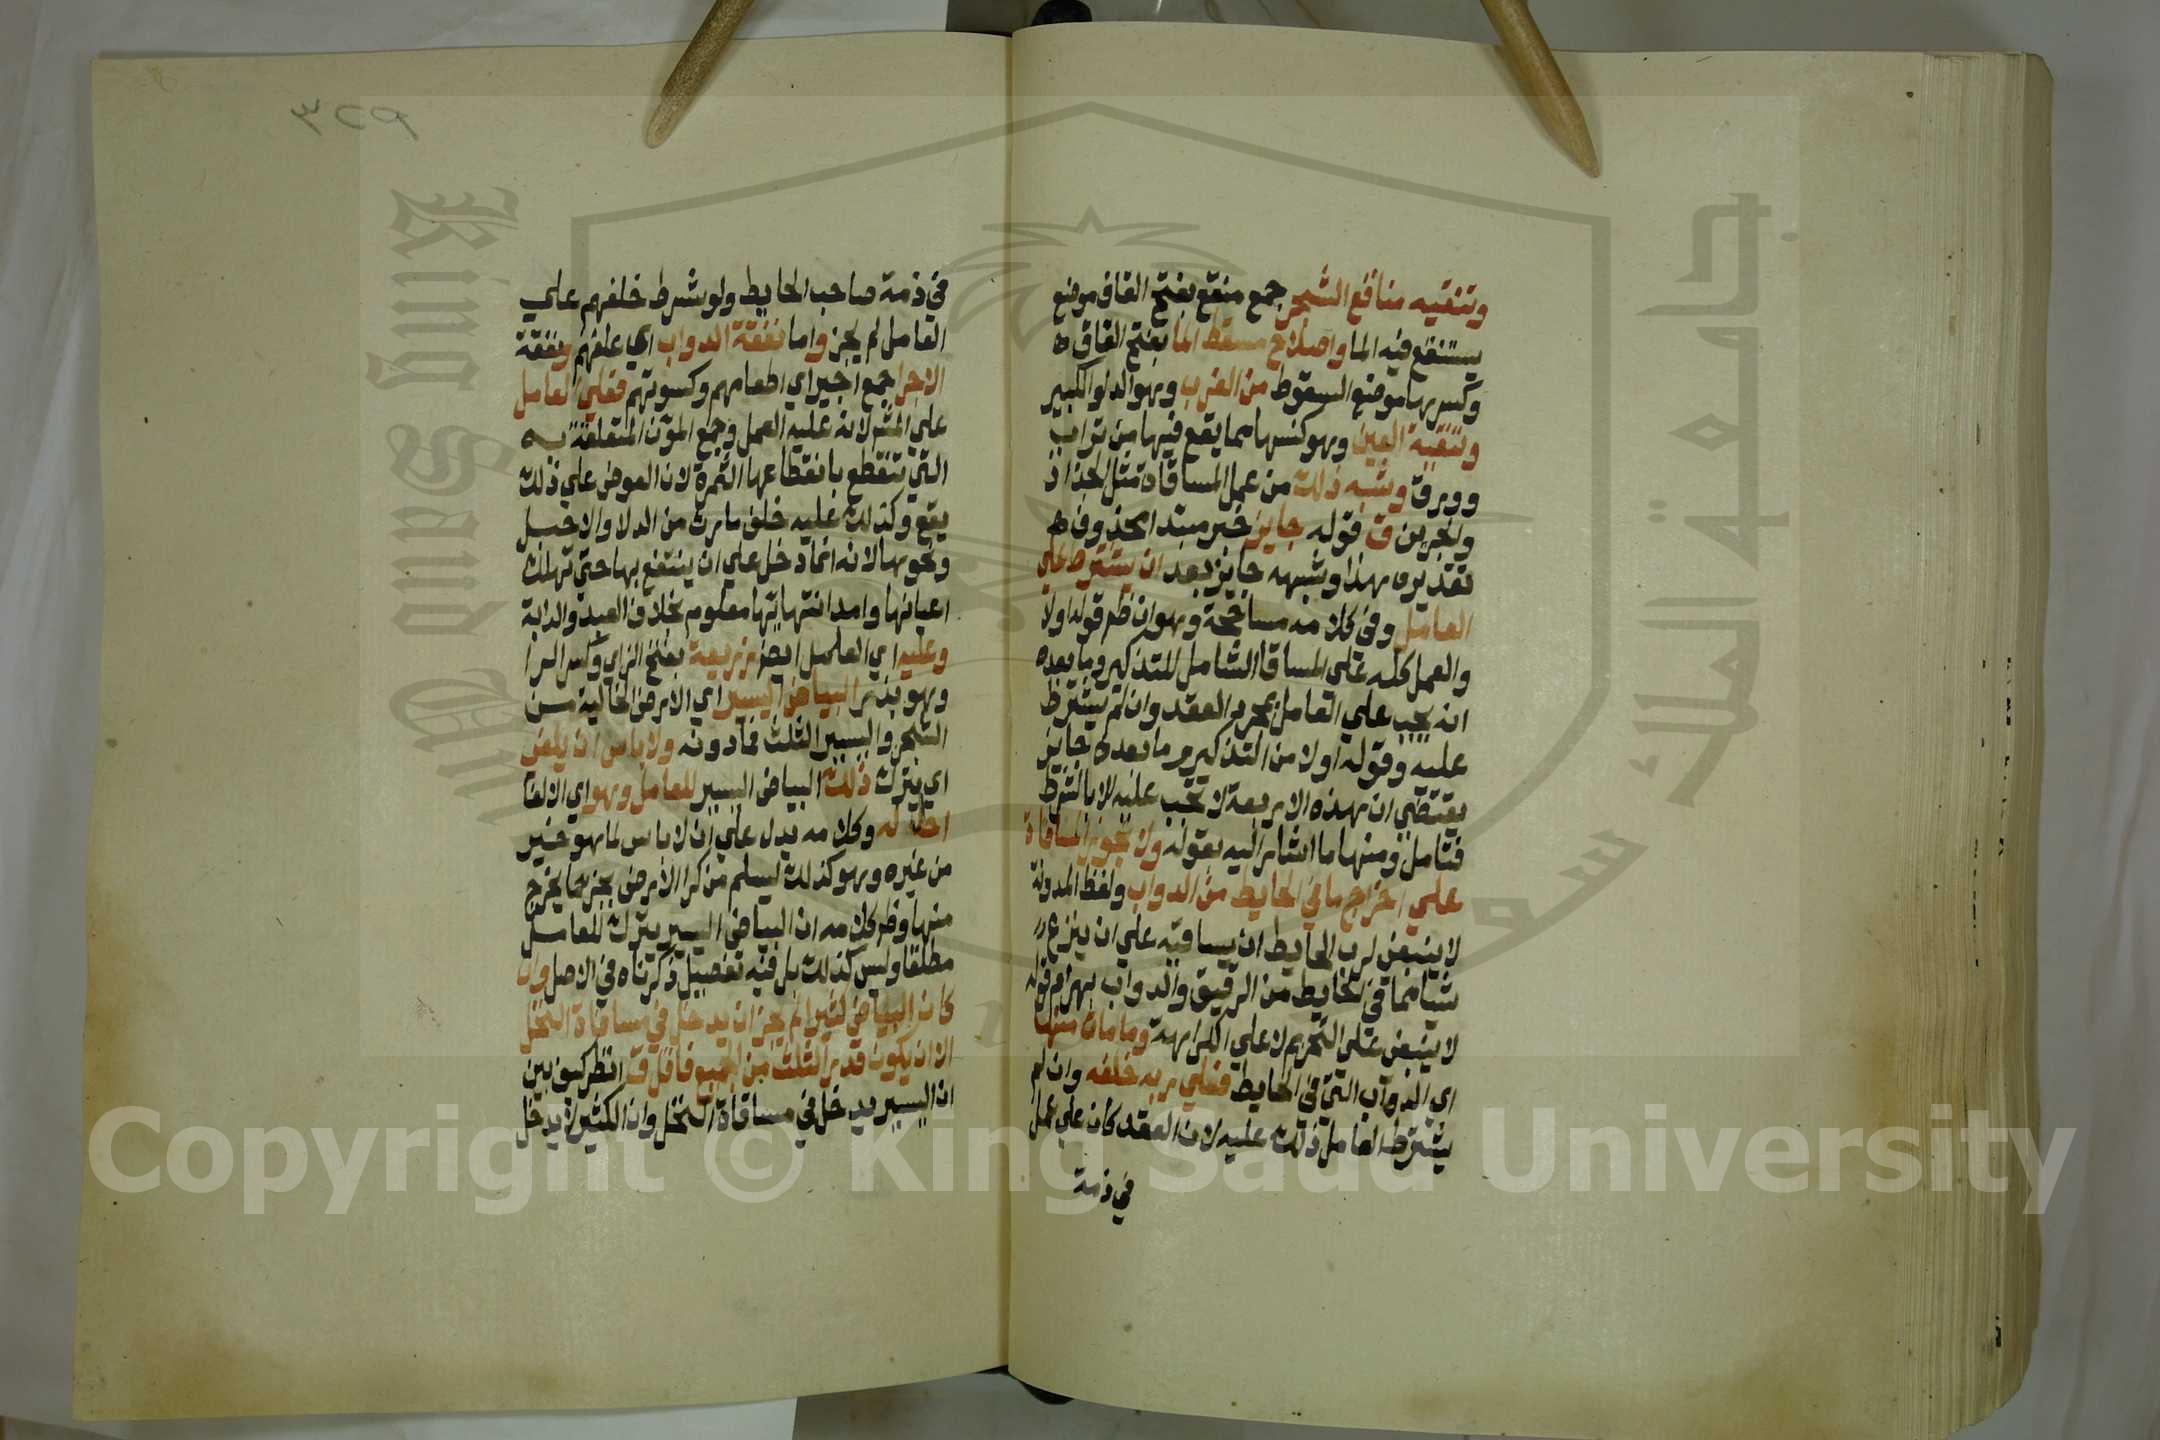 وتنقيه منافع الشجر جمع منقع بفتح القاف موضع
يستنقع فيه الما واصلاح مسقط الما بفتح القاف ه
وكسرها موضع السقوط من الغرب وهو الدلو الكبير
وتنقية العين وهو كنسها مما يقع فيها من تراب
وورق وشبه ذلك من عمل المساقاة مثل الجذاذ
والجرين ق قوله جايز خبر مبتدا محذوف ه
تقديره هذا وشبهه جايز بعد ان يشترط علي
العامل وفي كلامه مسامحة وهو ان ظم قوله اولا
والعمل كله علي المساقا الشامل للتذكير وما بعده
انه يجب علي العامل بمجرد العقد وان لم يشترط
عليه وقوله اولا من التذكير وما بعده جايز
يقتضي ان هذه الاربعة لا تجب عليه الا بالشرط
فتامل ومنها ما اشار اليه بقوله ولا تجوز المساقاة
علي اخراج ما في الحايط من الدواب ولفظ المدونة
لا ينبغي لرب الحايط ان يساقيه علي ان ينزع
شيا مما في الحايط من الرقيق والدواب بهرام قوله
لا ينبغي علي التحريم لا علي الكراهة وما مات منها
اي الدواب التي في الحايط فعلي ربه خلفه وان لم
يشترط العامل ذلك عليه لان العقد كان علي عمل
في ذمة
٣٢٩
في ذمة صاحب الحايط ولو شرط خلفهم علي
العامل لم يجز واما نفقة الدواب اي علفهم ونفقة
الاجرا جمع اجير اي اطعامهم وكسوتهم فعلي العامل
علي المش لانه عليه العمل وجمع المؤن المتعلقة به
التي تنقطع بانقطاعها الثمرة لان العوض علي ذلك
يقع وكذلك عليه خلف مارث من الدلا والاحبل
ونحوها لانه انما دخل علي ان ينتفع بها حتي تهلك
اعيانها وامد انتهايتها معلوم بخلاف العبد والدابة
وعليه اي العامل ايض زريعة بفتح الزاي وكسر الرا
وهو بذر البياض اليسير اي الارض الخالية من
الشجر واليسير الثلث فما دونه ولا باس ان يلغي
اي يترك ذلك البياض اليسير للعامل وهو اي الالغا
احل له وكلامه يدل علي ان لا باس لما هو خير
من غيره وهو كذلك ليسلم من كرا الارض بجز مما يخرج
منها وظ كلامه ان البياض اليسير يترك للعامل
مطلقا وليس كذلك بل فيه تفصيل ذكرناه في الاصل وان
كان البياض كثيرا لم يجز ان يدخل في مساقاة النخل
الا ان يكون قدر الثلث من الجميع فاقل ق انظر كيف بين
ان اليسير يدخل في مساقاة النخل وان الكثير لا يدخل
King Saud University
جامعة الملك سعود
Copyright © King Saud University